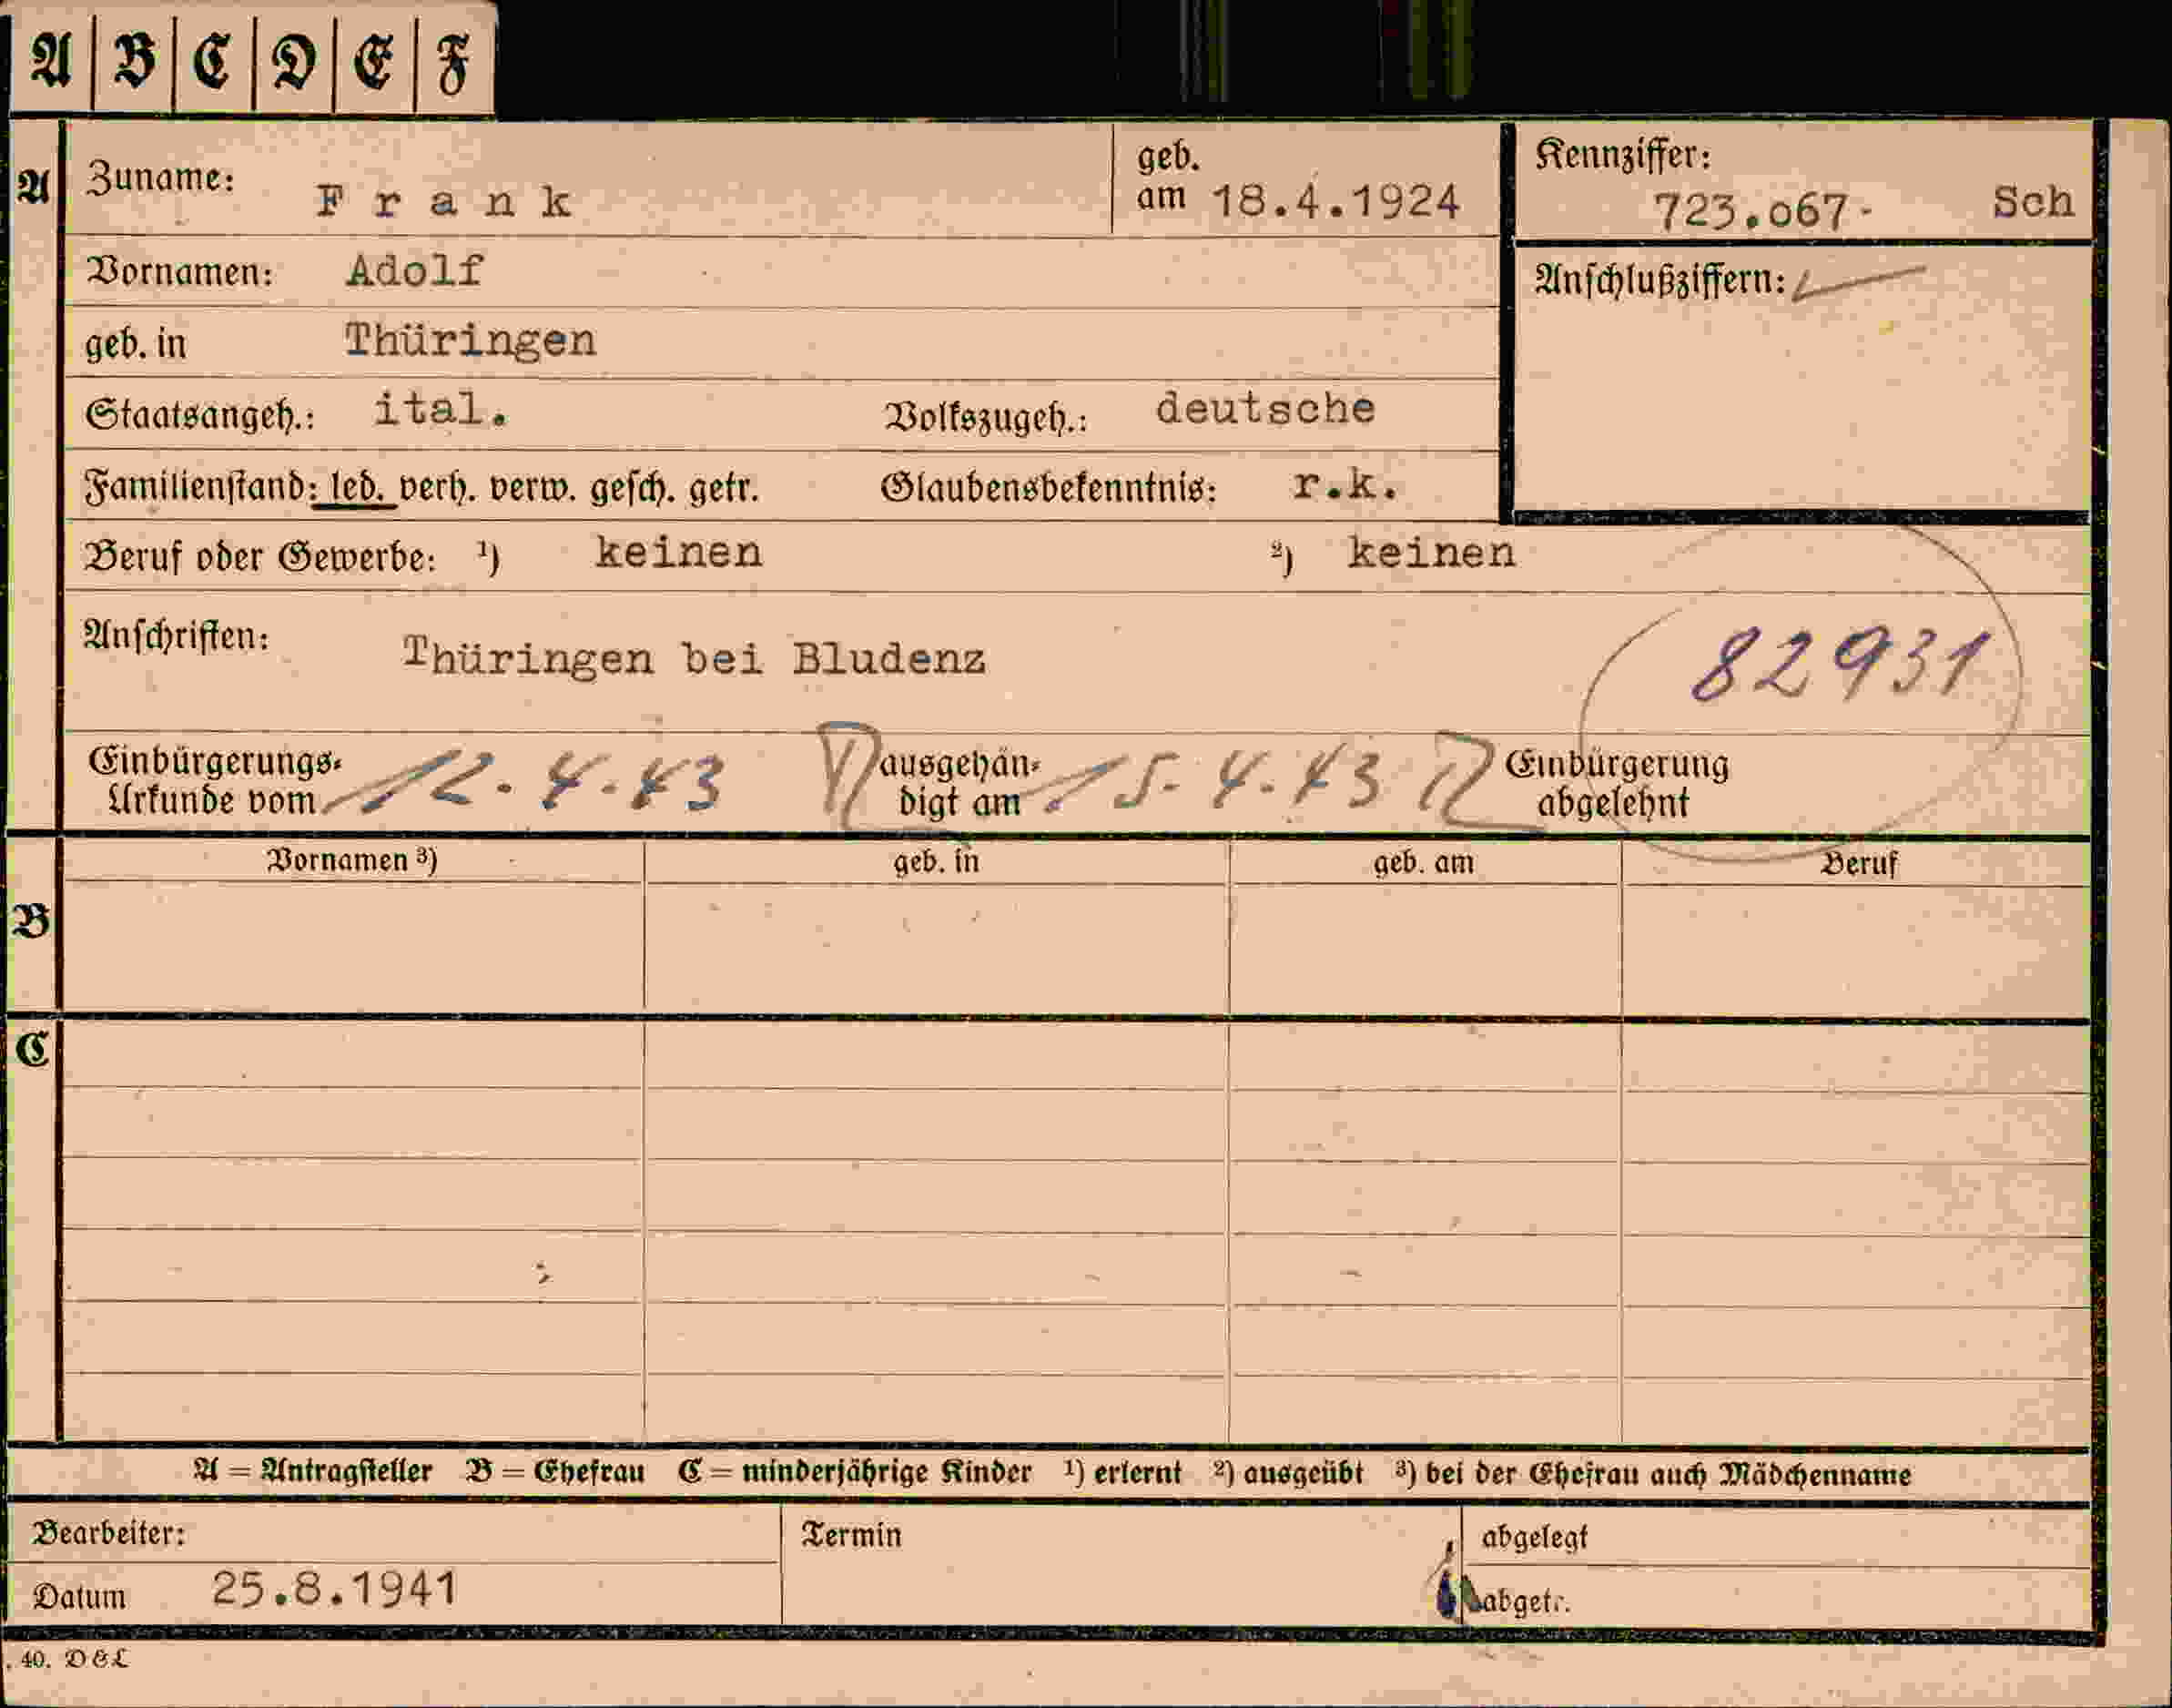 A B C D E F
A Zuname: Frank geb. am 18.4.1924 Kennziffer: 723.o67- Sch
Vornamen: Adolf Anschlußziffern:
geb. in Thüringen
Staatsangeh.: ital. Volkszugeh.: deutsche
Familienstand: led. verh. verw. gesch. getr. Glaubensbekenntnis: r.k.
Beruf oder Gewerbe: ¹) keinen ²) keinen
Anschriften: Thüringen bei Bludenz 82931
Einbürgerungs-Urkunde vom 12.4.43 ausgehändigt am 15.4.43 Einbürgerung abgelehnt
Vornamen ³) geb. in geb. am Beruf
B
C
A = Antragsteller B = Ehefrau C = minderjährige Kinder ¹) erlernt ²) ausgeübt ³) bei der Ehefrau auch Mädchenname
Bearbeiter: Termin abgelegt
Datum 25.8.1941 abgetr.
. 40. D & L